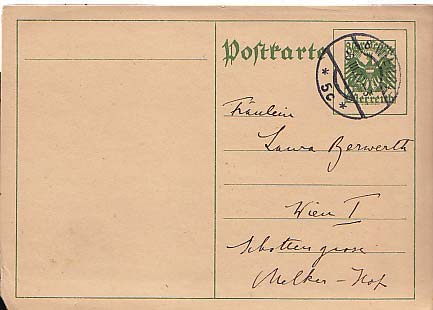 Postkarte
Deutsch-
österreich
* 5c *
Fräulein
Laura Berwerth
Wien I
Schottengasse
Melker-Hof